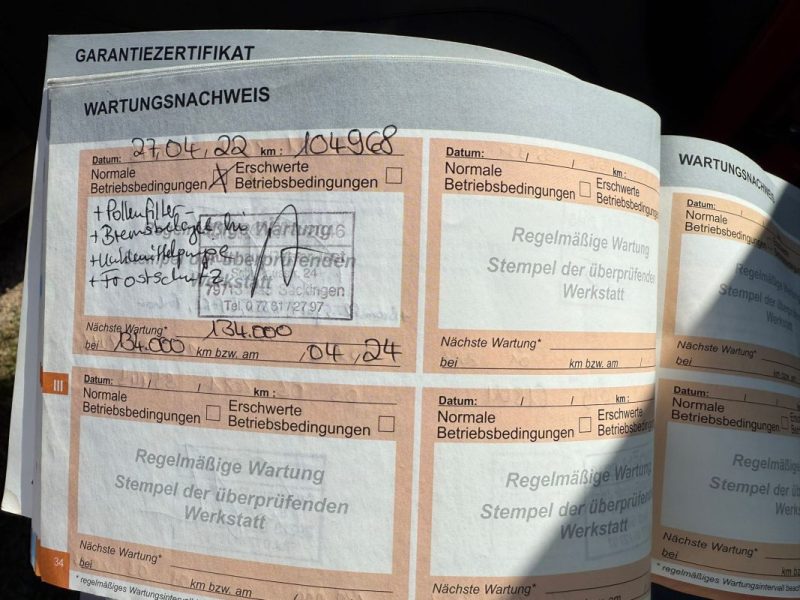 GARANTIEZERTIFIKAT
WARTUNGSNACHWEIS
Datum: 27,04,22 km: 104968
Normale Betriebsbedingungen
Erschwerte Betriebsbedingungen
+ Pollenfilter
+ Bremsbeläge hi
+
+ Frostschutz
Regelmäßige Wartung
Stempel der überprüfenden
Werkstatt
Säckingen
Tel. 0 77 61 / 27 97
Nächste Wartung* 134.000
bei 134.000 km bzw. am ,04,24
Datum: / / km:
Normale Betriebsbedingungen
Erschwerte Betriebsbedingungen
Regelmäßige Wartung
Stempel der überprüfenden
Werkstatt
Nächste Wartung*
bei km bzw. am / /
III
Datum: / / km:
Normale Betriebsbedingungen
Erschwerte Betriebsbedingungen
Regelmäßige Wartung
Stempel der überprüfenden
Werkstatt
Nächste Wartung*
bei km bzw. am / /
Datum: / / km:
Normale Betriebsbedingungen
Erschwerte Betriebsbedingungen
Regelmäßige Wartung
Stempel der überprüfenden
Werkstatt
Nächste Wartung*
34
* regelmäßiges Wartungsintervall
WARTUNGSNACHWEIS
Datum: / /
Normale
Betriebsbedingungen
Regelmäßige
Stempel der
Nächste Wartung*
bei km bzw.
Datum: / /
Normale
Betriebsbedingungen
Regelmäßige
Stempel der
Nächste Wartung*
bei
* regelmäßiges Wartungsintervall